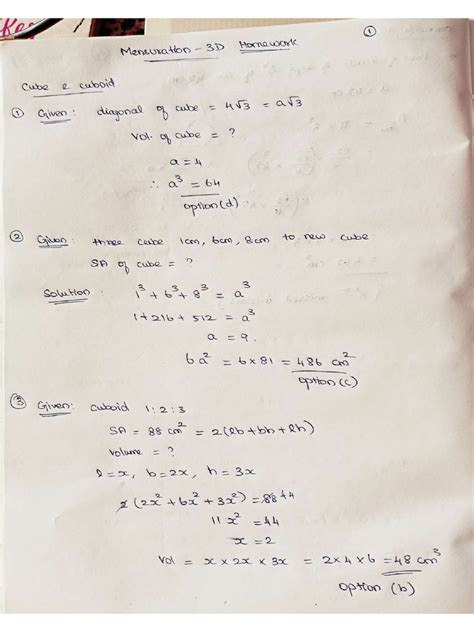 ①
Mensuration - 3D Homework
Cube & cuboid
① Given: diagonal of cube = 4√3 = a√3
Vol. of cube = ?
a = 4
∴ a³ = 64
option(d)
② Given: three cube 1cm, 6cm, 8cm to new cube
SA of cube = ?
Solution:
1³ + 6³ + 8³ = a³
1 + 216 + 512 = a³
a = 9.
6a² = 6 × 81 = 486 cm²
option(c)
③ Given: cuboid 1:2:3
SA = 88 cm² = 2(lb + bh + lh)
volume = ?
l = x, b = 2x, h = 3x
2(2x² + 6x² + 3x²) = 88 44
11x² = 44
x = 2
Vol = x × 2x × 3x = 2 × 4 × 6 = 48 cm³
option (b)